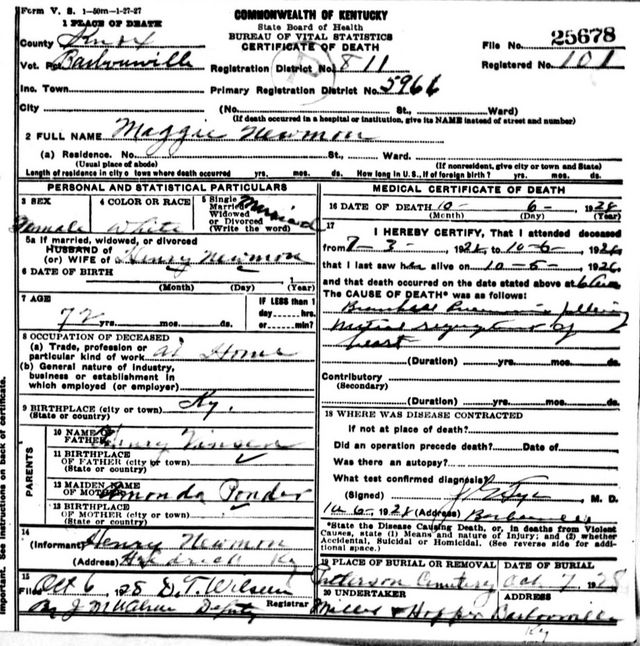 Form V. S. 1-50m-1-27-27
COMMONWEALTH OF KENTUCKY
State Board of Health
BUREAU OF VITAL STATISTICS
CERTIFICATE OF DEATH
1 PLACE OF DEATH
County Knox
File No. 25678
Vot. Barbourville
Registration District No. 811
Registered No. 101
Inc. Town
Primary Registration District No. 5966
City (No. St., Ward)
(If death occurred in a hospital or institution, give its NAME instead of street and number)
2 FULL NAME Maggie Newmon
(a) Residence. No. St., Ward.
(Usual place of abode) (If nonresident, give city or town and State)
Length of residence in city or town where death occurred yrs. mos. ds. How long in U.S., if of foreign birth? yrs. mos. ds.
PERSONAL AND STATISTICAL PARTICULARS
3 SEX Female
4 COLOR OR RACE White
5 Single Married Widowed or Divorced (Write the word) Married
5a If married, widowed, or divorced
HUSBAND of
(or) WIFE of Henry Newmon
6 DATE OF BIRTH
(Month) (Day) (Year)
7 AGE
72 yrs. mos. ds.
IF LESS than 1 day hrs. or min?
8 OCCUPATION OF DECEASED
(a) Trade, profession or particular kind of work at Home
(b) General nature of industry, business or establishment in which employed (or employer)
9 BIRTHPLACE (city or town) Ky.
(State or country)
PARENTS
10 NAME OF FATHER Henry
11 BIRTHPLACE OF FATHER (city or town)
(State or country)
12 MAIDEN NAME OF MOTHER Amonda Ponder
13 BIRTHPLACE OF MOTHER (city or town)
(State or country)
14
(Informant) Henry Newmon
(Address) Ky
15
Filed Oct 6, 1928 D. T. Wilson
Deputy Registrar
MEDICAL CERTIFICATE OF DEATH
16 DATE OF DEATH 10- 6- 1928
(Month) (Day) (Year)
17
I HEREBY CERTIFY, That I attended deceased
from 7-3- 1928 to 10-6- 1928
that I last saw her alive on 10-5- 1928
and that death occurred on the date stated above at
The CAUSE OF DEATH* was as follows:
Bronchial Pneumonia following
Mitral regurgitation of
heart
(Duration) yrs. mos. ds.
Contributory
(Secondary)
(Duration) yrs. mos. ds.
18 WHERE WAS DISEASE CONTRACTED
If not at place of death?
Did an operation precede death? Date of
Was there an autopsy?
What test confirmed diagnosis?
(Signed) M. D.
10-6- 1928 (Address) Barbourville
*State the Disease Causing Death, or, in deaths from Violent
Causes, state (1) Means and nature of Injury; and (2) whether
Accidental, Suicidal or Homicidal. (See reverse side for addi-
tional space.)
19 PLACE OF BURIAL OR REMOVAL DATE OF BURIAL
Cemetery Oct 7 1928
20 UNDERTAKER ADDRESS
Miller & Hopper Barbourville
Ky
Important. See instructions on back of certificate.